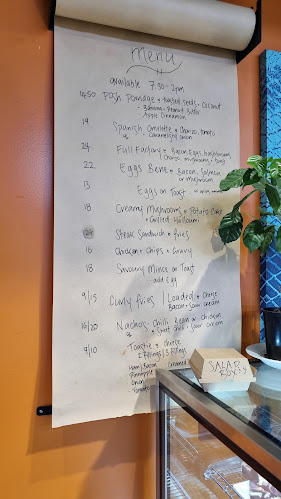 Menu
available 7.30 - 2pm
14.50 Posh Porridge + toasted seeds + Coconut
- Banana + Peanut Butter
- Apple Cinnamon
19 Spanish Omlette + Chorizo, tomato
Caramelised onion
24 Full Factory + Bacon Eggs, hashbrowns
Chorizo mushrooms + toast
22 Eggs Bene + Bacon, Salmon
or mushroom
13 Eggs on Toast
18 Creamy Mushrooms + Potato Cake
+ Grilled Halloumi
24 Steak Sandwich + fries
16 Chicken + Chips + Gravy
18 Savoury Mince on Toast
add Egg
9/15 Curly fries / Loaded + Cheese
Bacon + sour cream
16/20 Nachos Chilli Bean or chicken
+ Sweet chilli + Sour cream
9/10 Toastie + cheese
2 Fillings / 3 Fillings
Ham / Bacon Creamed
Pineapple
Onion
Tomato
SALAD
BOXES